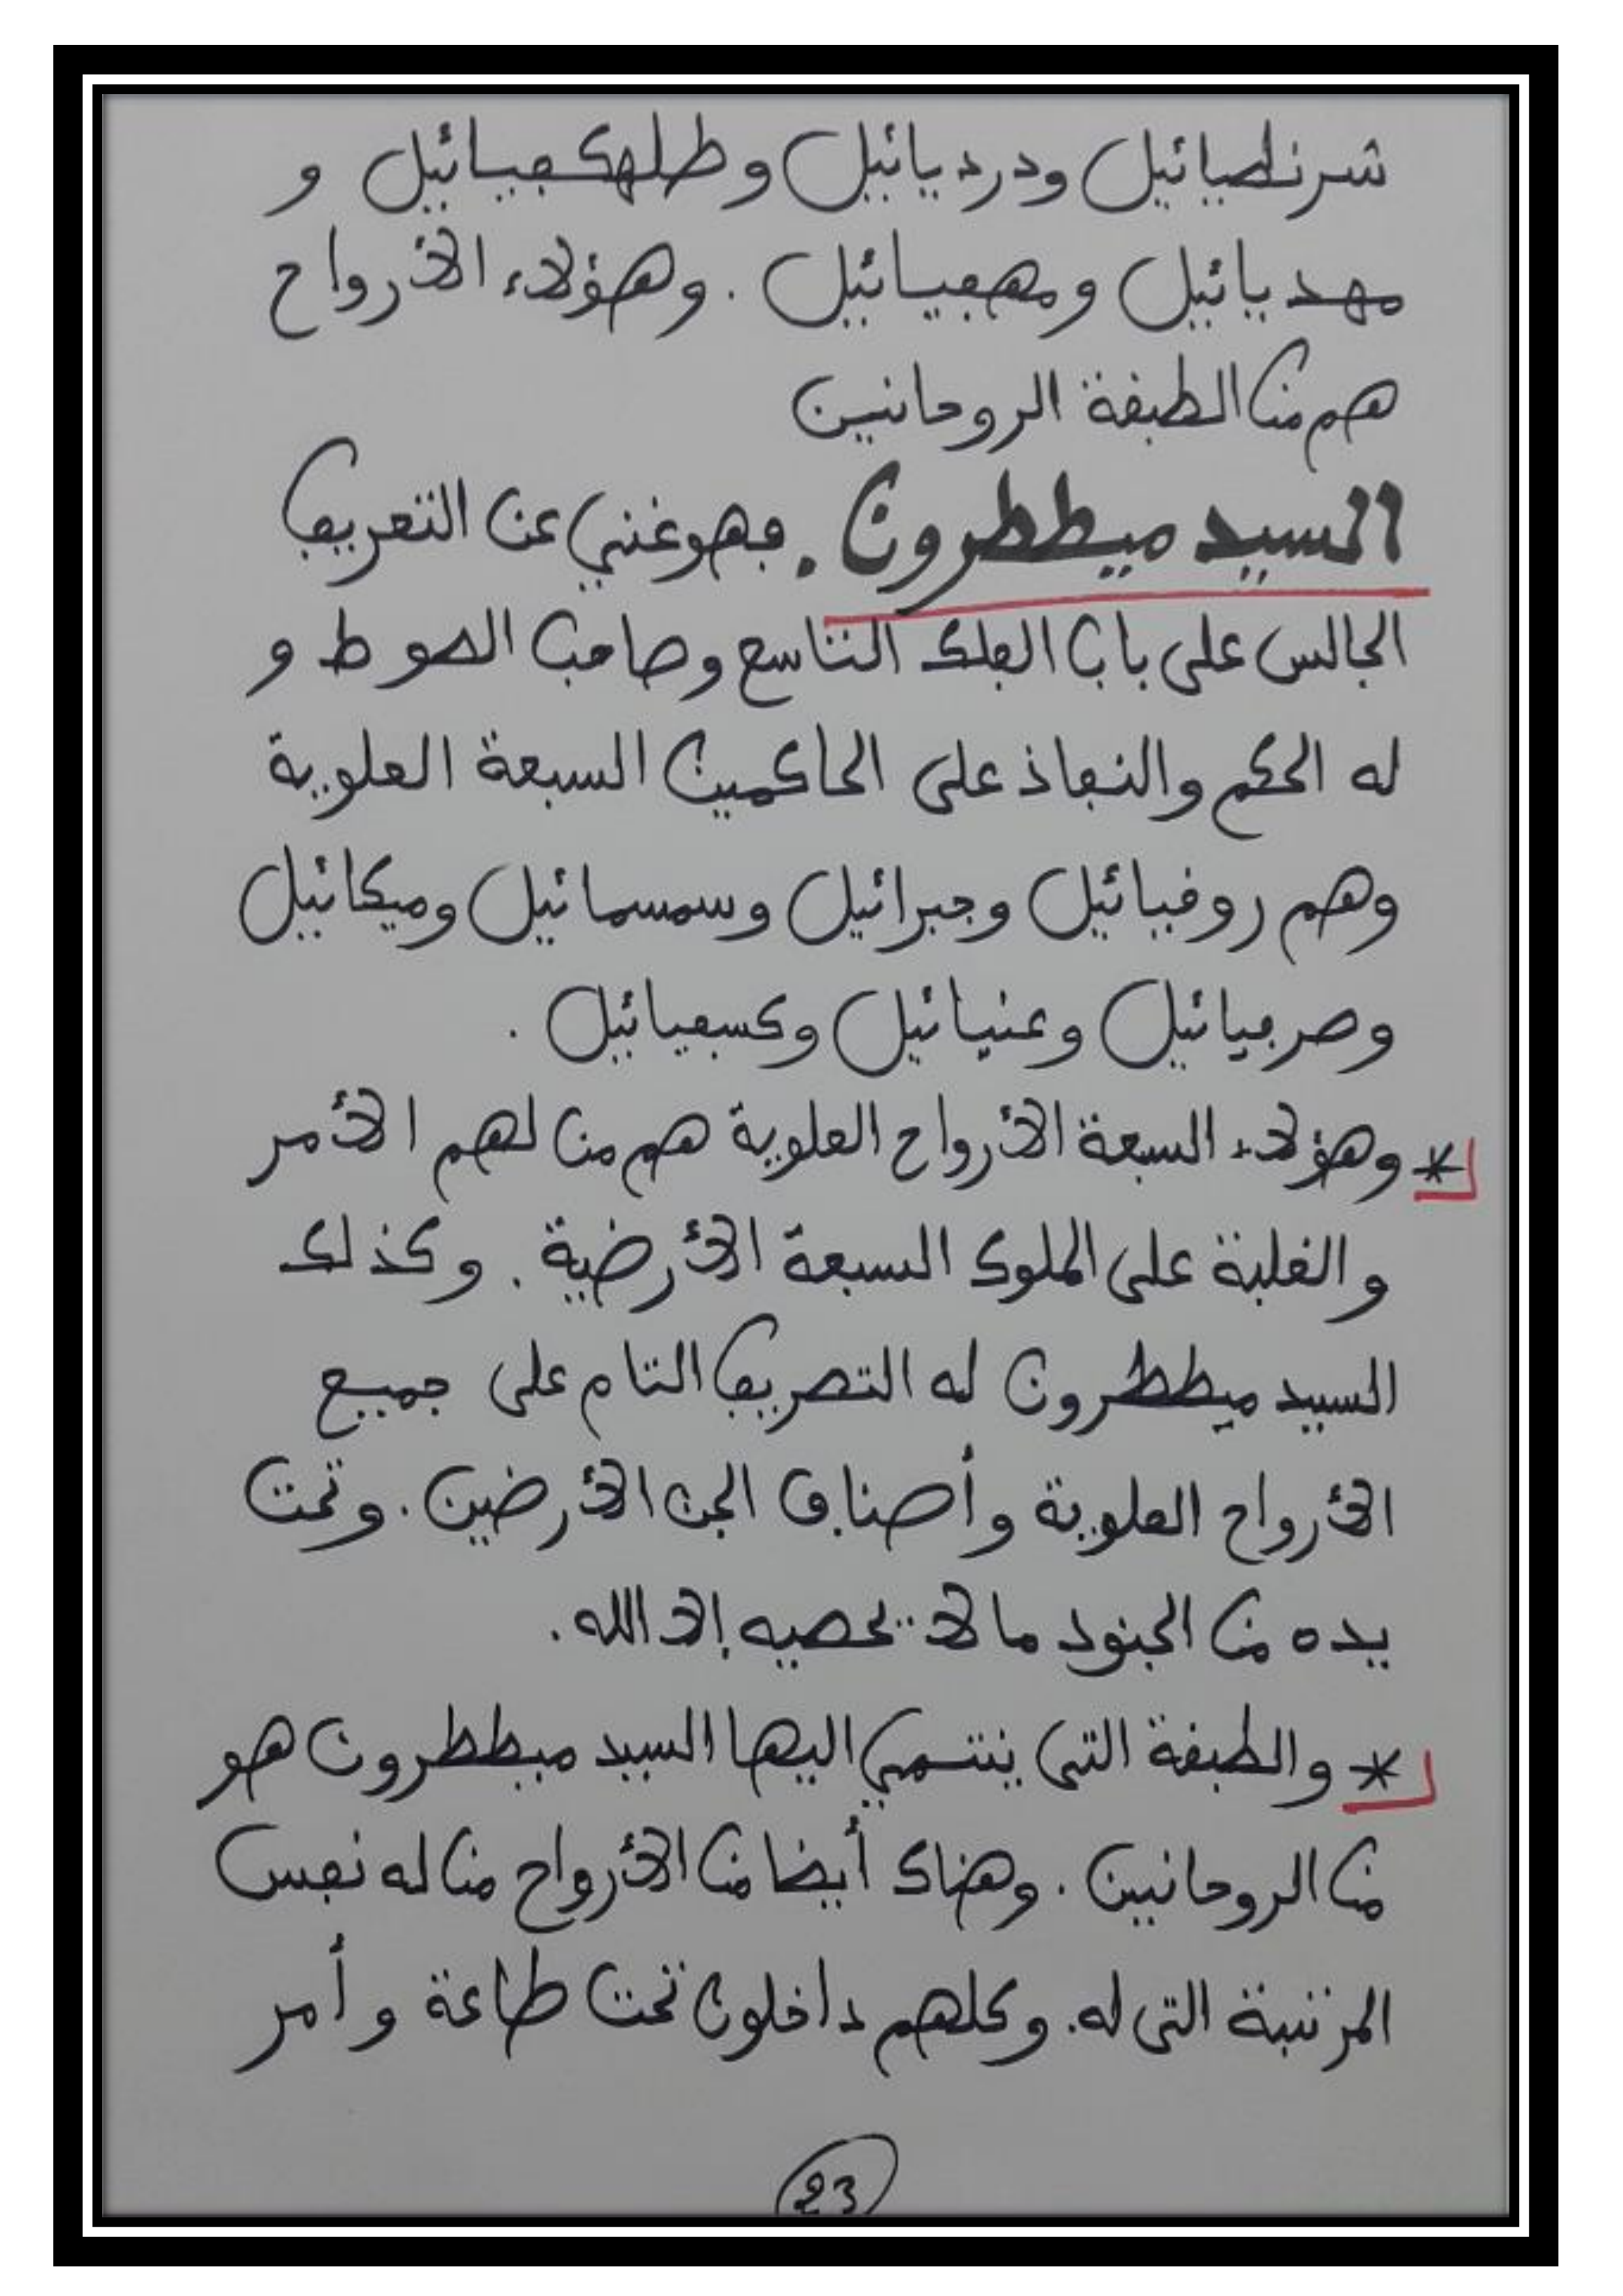 شرنطيائيل ودرديائيل وطلهكفيائيل و
مهديائيل ومهفيائيل . وهؤلاء الأرواح
هم من الطبقة الروحانين
السيد ميططرون . فهو غني عن التعريف
الجالس على باب الفلك التاسع وصاحب الصوط و
له الحكم والنفاذ على الحاكمين السبعة العلوية
وهم روقيائيل وجبرائيل وسمسمائيل وميكائيل
وصرفيائيل وعنيائيل وكسفيائيل .
* وهؤلاء السبعة الأرواح العلوية هم من لهم الأمر
والغلبة على الملوك السبعة الأرضية . وكذلك
السيد ميططرون له التصريف التام على جميع
الأرواح العلوية وأصناف الجن الأرضين . وتحت
يده من الجنود ما لا يحصيه إلا الله .
* والطبقة التي ينتمي اليها السيد ميططرون هو
من الروحانيين . وهناك أيضا من الأرواح من له نفس
المرتبة التي له . وكلهم داخلون تحت طاعة وأمر
23